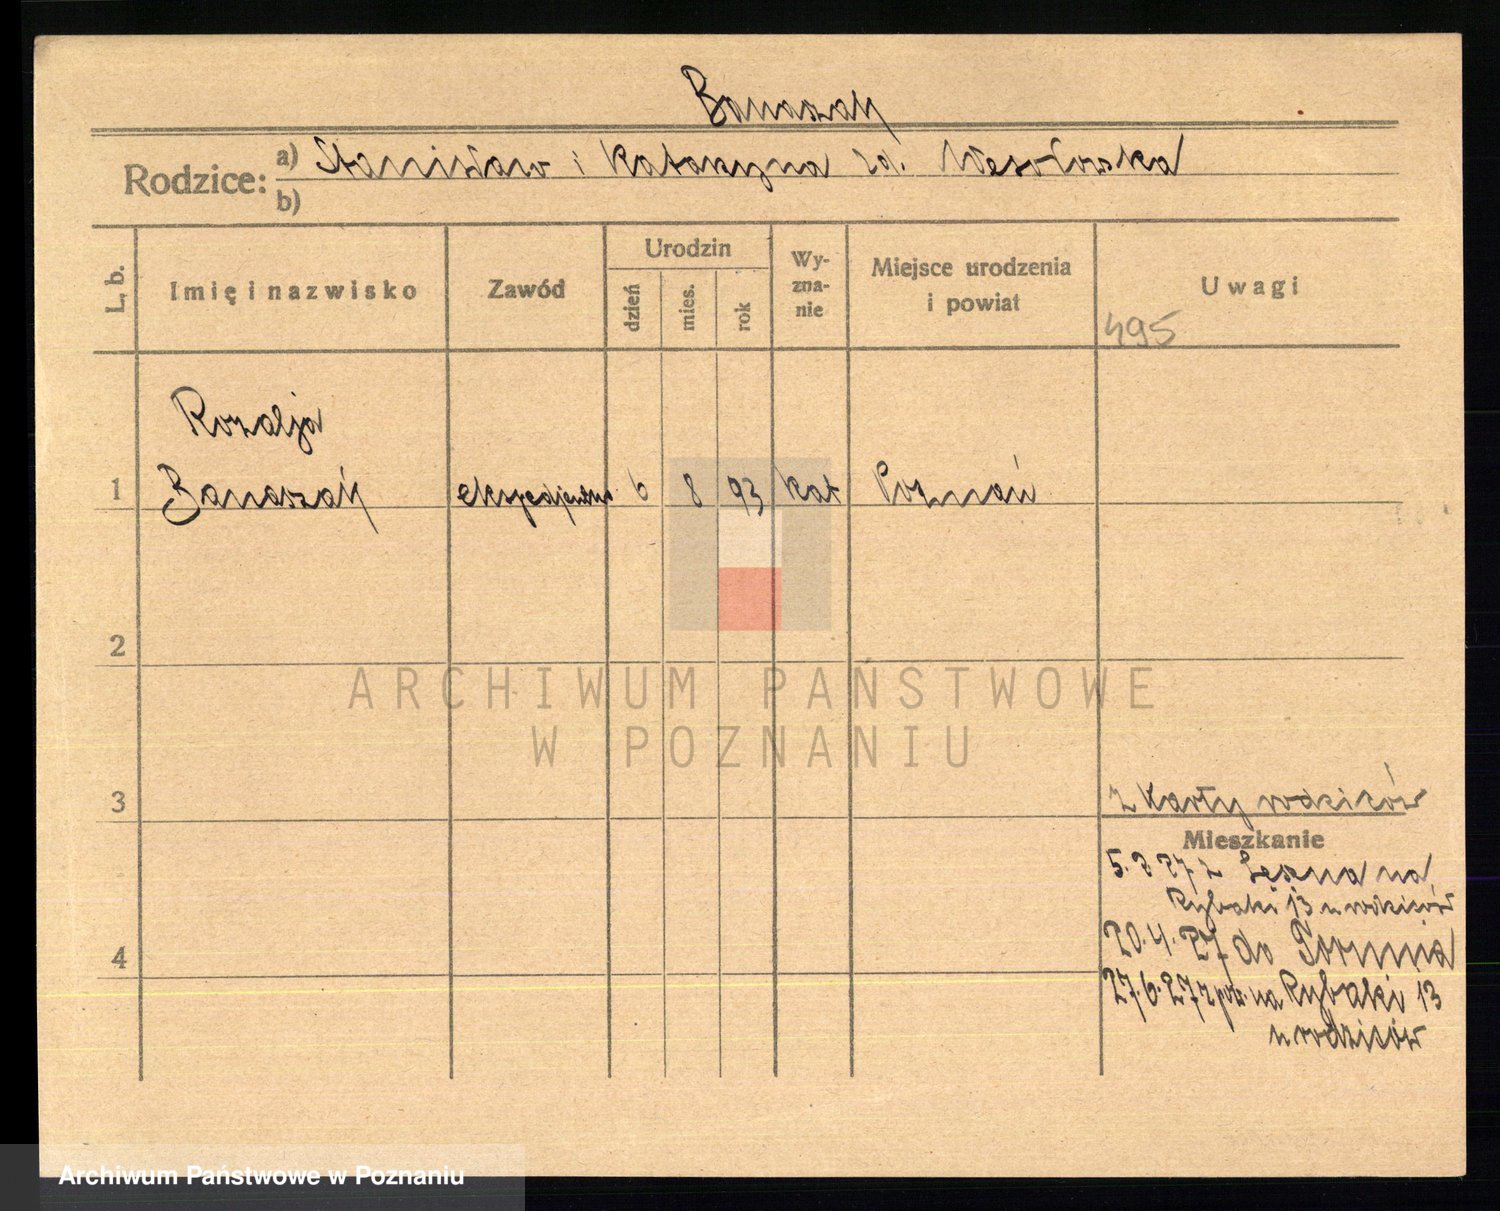 Banaszak
Rodzice: a) Stanisław i Katarzyna zd. Wesołowska
b)
L. b.
Imię i nazwisko
Zawód
Urodzin
dzień
mies.
rok
Wy-
zna-
nie
Miejsce urodzenia
i powiat
Uwagi
495
Rozalja
1 Banaszak ekspedjentka 6 8 93 kat Poznań
2
ARCHIWUM PAŃSTWOWE
W POZNANIU
3
z karty rodziców
Mieszkanie
5. 3 27 z Leszna na
Rybaki 13 u rodziców
4
20. 4. 27 do Torunia
27. 6. 27 z pow. na Rybaki 13
u rodziców
Archiwum Państwowe w Poznaniu